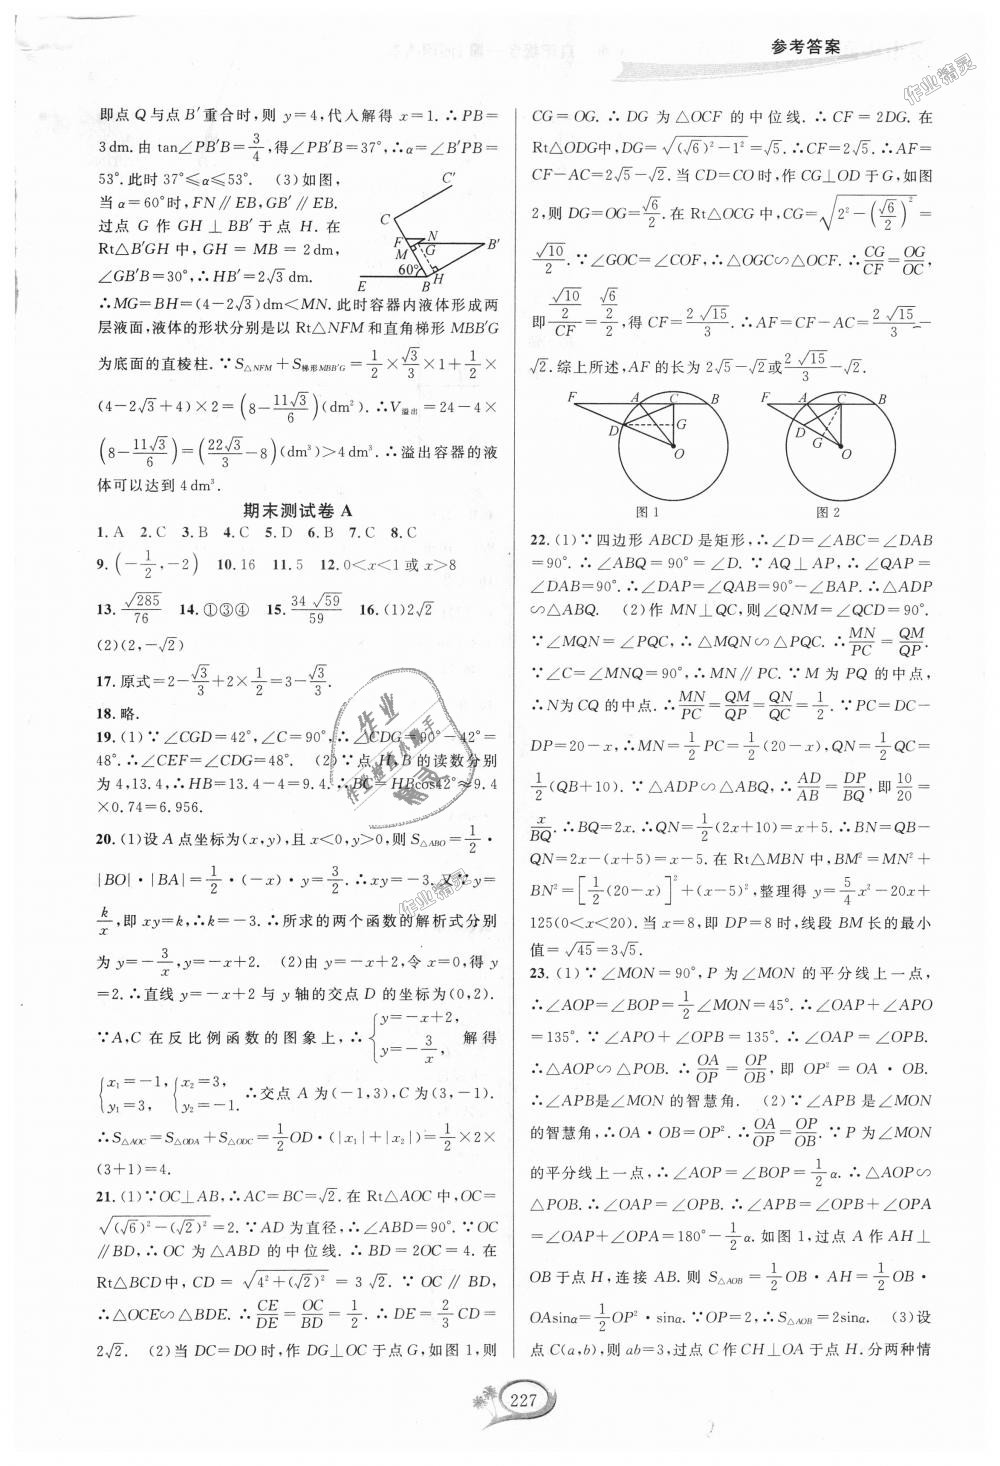 参考答案
即点 Q 与点 B′重合时,则 y=4,代入解得 x=1.∴PB=
3 dm.由 tan∠PB′B=3/4,得∠PB′B=37°,∴α=∠B′PB=
53°.此时 37°≤α≤53°. (3)如图,
当 α=60°时,FN∥EB,GB′∥EB.
过点 G 作 GH⊥BB′于点 H.在
Rt△B′GH 中,GH=MB=2 dm,
∠GB′B=30°,∴HB′=2√3 dm.
C′
C
F N
G B′
M
60°
E B H
∴MG=BH=(4-2√3)dm<MN.此时容器内液体形成两
层液面,液体的形状分别是以 Rt△NFM 和直角梯形 MBB′G
为底面的直棱柱.∵S△NFM+S梯形MBB′G=1/2×√3/3×1+1/2×
(4-2√3+4)×2=(8-11√3/6)(dm²).∴V溢出=24-4×
(8-11√3/6)=(22√3/3-8)(dm³)>4 dm³.∴溢出容器的液
体可以达到 4 dm³.
期末测试卷 A
1. A 2. C 3. B 4. C 5. D 6. B 7. C 8. C
9. (-1/2,-2) 10. 16 11. 5 12. 0<x<1 或 x>8
13. √285/76 14. ①③④ 15. 34√59/59 16. (1)2√2
(2)(2,-√2)
17. 原式=2-√3/3+2×1/2=3-√3/3.
18. 略.
19. (1)∵∠CGD=42°,∠C=90°,∴∠CDG=90°-42°=
48°.∴∠CEF=∠CDG=48°. (2)∵点 H,B 的读数分别
为 4,13.4,∴HB=13.4-4=9.4.∴BC=HBcos42°≈9.4
×0.74=6.956.
20. (1)设 A 点坐标为(x,y),且 x<0,y>0,则 S△ABO=1/2·
|BO|·|BA|=1/2·(-x)·y=3/2.∴xy=-3.又∵y=
k/x,即 xy=k,∴k=-3.∴所求的两个函数的解析式分别
为 y=-3/x,y=-x+2. (2)由 y=-x+2,令 x=0,得 y
=2.∴直线 y=-x+2 与 y 轴的交点 D 的坐标为(0,2).
∵A,C 在反比例函数的图象上,∴{y=-x+2, y=-3/x, 解得
{x₁=-1, y₁=3, {x₂=3, y₂=-1. ∴交点 A 为(-1,3),C 为(3,-1).
∴S△AOC=S△ODA+S△ODC=1/2OD·(|x₁|+|x₂|)=1/2×2×
(3+1)=4.
21. (1)∵OC⊥AB,∴AC=BC=√2.在 Rt△AOC 中,OC=
√((√6)²-(√2)²)=2.∵AD 为直径,∴∠ABD=90°.∵OC
∥BD,∴OC 为△ABD 的中位线.∴BD=2OC=4.在
Rt△BCD 中,CD=√(4²+(√2)²)=3√2.∵OC∥BD,
∴△OCE∽△BDE.∴CE/DE=OC/BD=1/2.∴DE=2/3CD=
2√2. (2)当 DC=DO 时,作 DG⊥OC 于点 G,如图 1,则
CG=OG.∴DG 为△OCF 的中位线.∴CF=2DG.在
Rt△ODG 中,DG=√((√6)²-1²)=√5.∴CF=2√5.∴AF=
CF-AC=2√5-√2.当 CD=CO 时,作 CG⊥OD 于 G,如图
2,则 DG=OG=√6/2.在 Rt△OCG 中,CG=√(2²-(√6/2)²)=
√10/2.∵∠GOC=∠COF,∴△OGC∽△OCF.∴CG/CF=OG/OC,
即(√10/2)/CF=(√6/2)/2,得 CF=2√15/3.∴AF=CF-AC=2√15/3-
√2.综上所述,AF 的长为 2√5-√2或2√15/3-√2.
F A C B
D G
O
图 1
F A C B
D G O
图 2
22. (1)∵四边形 ABCD 是矩形,∴∠D=∠ABC=∠DAB
=90°.∴∠ABQ=90°=∠D.∵AQ⊥AP,∴∠QAP=
∠DAB=90°.∴∠DAP=∠QAB=90°-∠BAP.∴△ADP
∽△ABQ. (2)作 MN⊥QC,则∠QNM=∠QCD=90°.
∵∠MQN=∠PQC,∴△MQN∽△PQC.∴MN/PC=QM/QP.
∵∠C=∠MNQ=90°,∴MN∥PC.∵M 为 PQ 的中点,
∴N为 CQ 的中点.∴MN/PC=QM/QP=QN/QC=1/2.∵PC=DC-
DP=20-x,∴MN=1/2PC=1/2(20-x),QN=1/2QC=
1/2(QB+10).∵△ADP∽△ABQ,∴AD/AB=DP/BQ,即10/20=
x/BQ.∴BQ=2x.∴QN=1/2(2x+10)=x+5.∴BN=QB-
QN=2x-(x+5)=x-5.在 Rt△MBN 中,BM²=MN²+
BN²=[1/2(20-x)]²+(x-5)²,整理得 y=5/4x²-20x+
125(0<x<20).当 x=8,即 DP=8 时,线段 BM 长的最小
值=√45=3√5.
23. (1)∵∠MON=90°,P 为∠MON 的平分线上一点,
∴∠AOP=∠BOP=1/2∠MON=45°.∴∠OAP+∠APO
=135°.∵∠APO+∠OPB=135°.∴∠OAP=∠OPB.
∴△AOP∽△POB.∴OA/OP=OP/OB,即 OP²=OA·OB.
∴∠APB是∠MON 的智慧角. (2)∵∠APB 是∠MON
的智慧角,∴OA·OB=OP².∴OA/OP=OP/OB.∵P 为∠MON
的平分线上一点,∴∠AOP=∠BOP=1/2α.∴△AOP∽
△POB.∴∠OAP=∠OPB.∴∠APB=∠OPB+∠OPA
=∠OAP+∠OPA=180°-1/2α.如图 1,过点 A 作 AH⊥
OB 于点 H,连接 AB.则 S△AOB=1/2OB·AH=1/2OB·
OAsinα=1/2OP²·sinα.∵OP=2,∴S△AOB=2sinα. (3)设
点 C(a,b),则 ab=3,过点 C 作 CH⊥OA 于点 H.分两种情
227
作业精灵